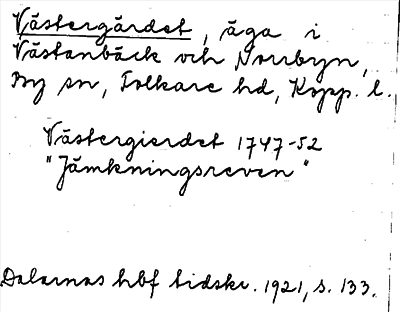 Västergärdet, äga i
Västanbäck och Norrbyn,
By sn, Folkare hd, Kopp. l.
Västergierdet 1747-52
"Jämkningsreven"
Dalarnas hbf tidskr. 1921, s. 133.